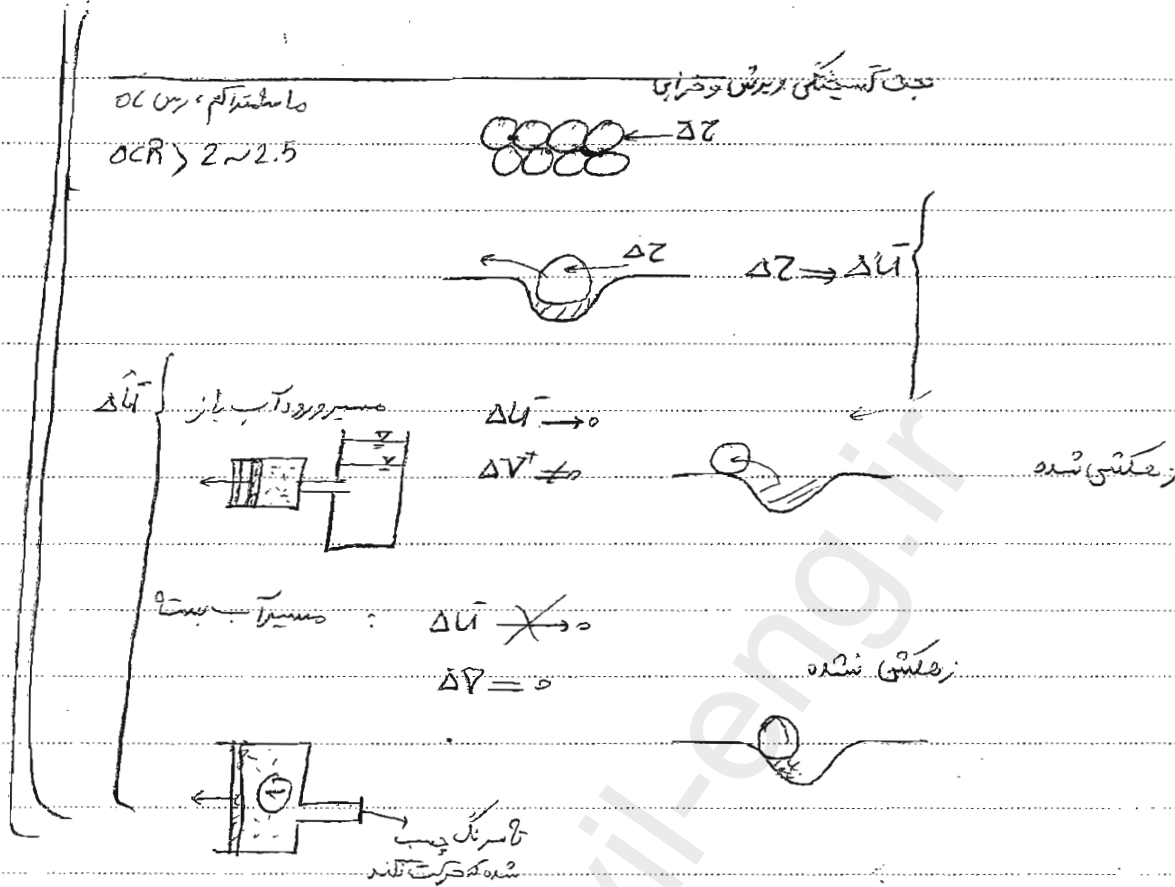 بحث گسیختگی برشی و خرابی
ماسه متراکم، رس OC
OCR > 2 ~ 2.5
Δτ
Δτ
Δτ ⇒ Δu⁻
Δu⁻
مسیر ورود آب باز
Δu⁻ → 0
ΔV⁺ ≠ 0
زهکشی شده
مسیر آب بسته :
Δu⁻ ↛ 0
ΔV = 0
زهکشی نشده
سرنگ چسب
شده که حرکت نکند
civil-eng.ir